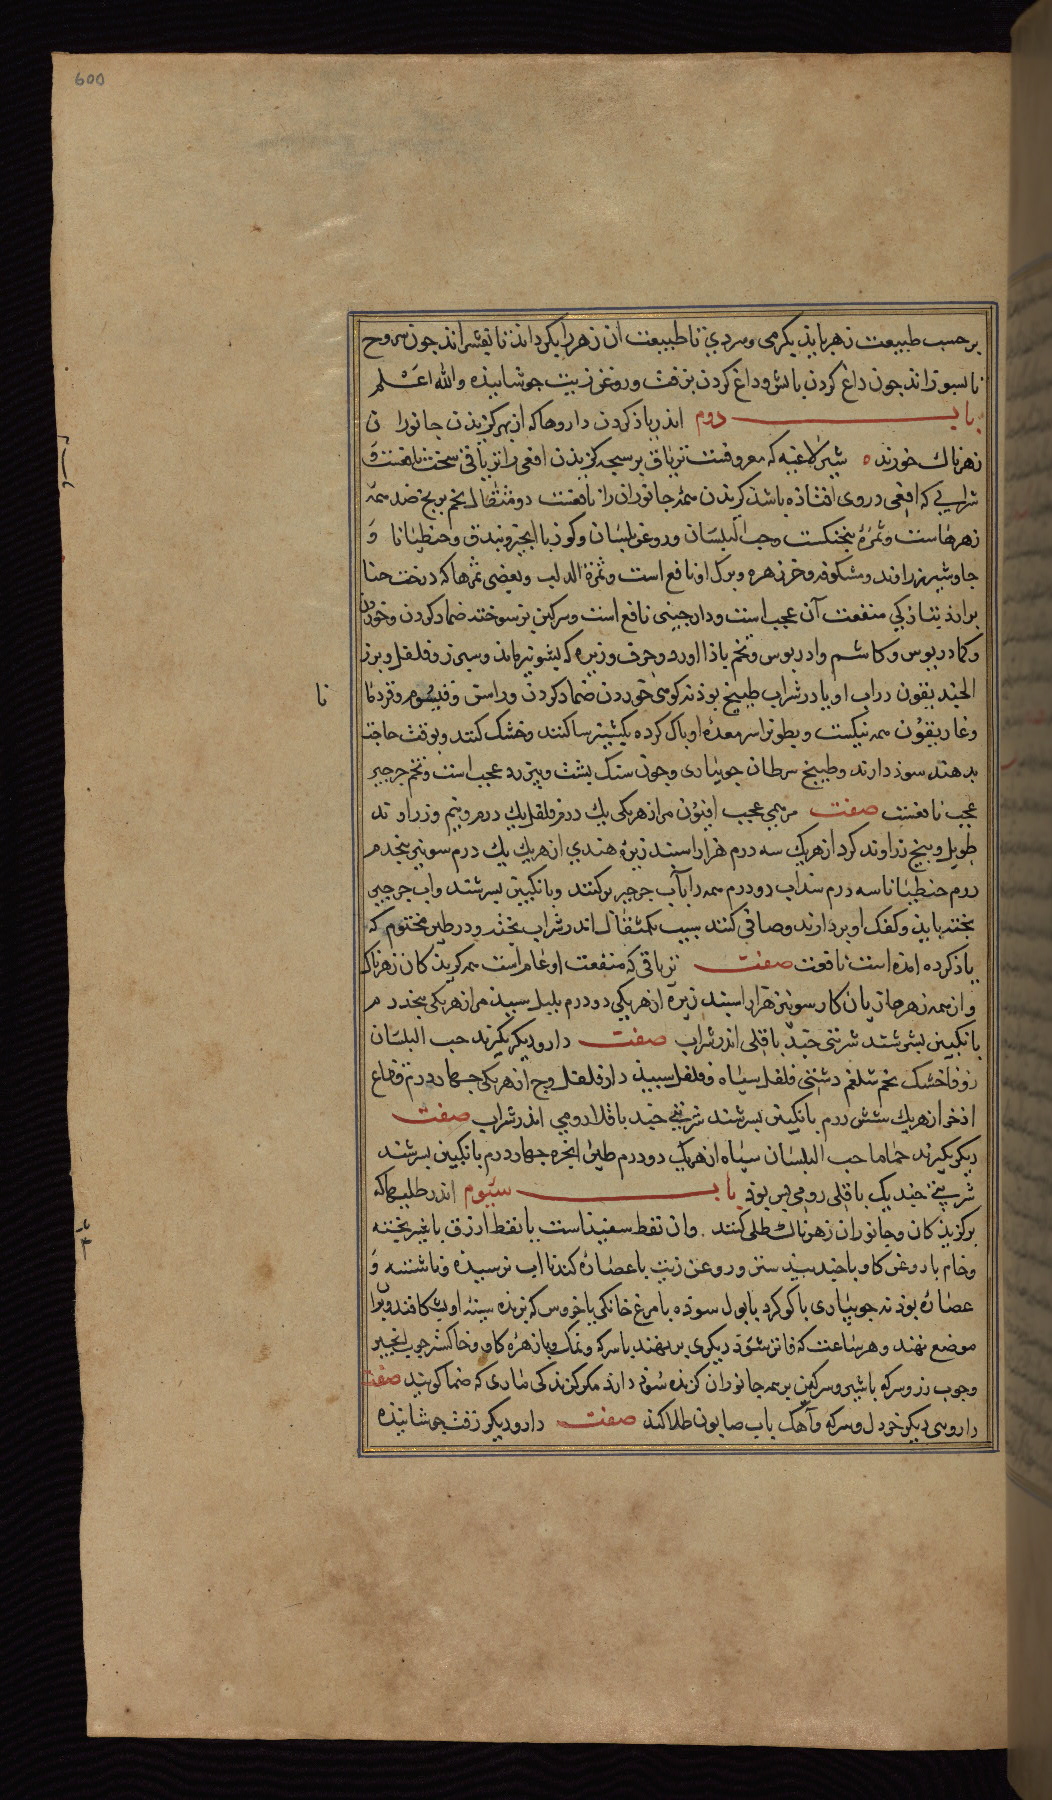 600
بر حسب طبیعت زهر باید بگرمی و سردی تا طبیعت ان زهر را بگرداند تا بفشراند جون
تا بسوزاند جون داغ کردن باتش و داغ کردن بزفت و روغن زیت جوشانیده والله اعلم
باب دوم اندر یاد کردن داروها که از بهر کزیدن جانوران
زهرناک خورند شیر لاعیه که معروفست تریاق بر سبحه کزیدن افعی را تریاقی سخت نافعست و
شرابی که افعی در وی افتاده باشد کزیدن همه جانوران را نافعست دو مثقال تخم ترنج ضد همه
زهرهاست و ثمره بنجنکشت و حب البلسان و روغن بلسان و کوز با انجیر و فندق و جنطیانا و
جاوشیر زراوند و شکوفه خرزهره و برک او نافع است و ثمرة الدلب و بعضی ثمرها که درخت حنا
براند بتازکی منفعت آن عجب است و دارجینی نافع است و سرکین بز سوخته ضماد کردن و خوردن
و کمادریوس و کاشم و ادریوس و تخم باداورد و حرف و زیره که بشونیز ماند و سیر و فلفل و بزر
در اب او یا در شراب طبیخ بودنه کوهی خوردن ضماد کردن و راسن و قیسوم و قردمانا
وغاریقون همه نیکست و بطون را سر معده او باک کرده بکشنیز بیاکنند و خشک کنند و بوقت حاجت
بدهند سود دارند و طبیخ سرطان جویباری و جون سنک بشت و پنیر ده عجب است و تخم جرجیر
عجب نافعست صفت مرهمی عجب افیون مر از هر یکی یک درم فلفل یک درم و نیم و زراوند
طویل و بیخ زراوند کرد از هر یک سه درم هزار اسبند زیره هندی از هر یک یک درم شونیز بنجدرم
درم جنطیانا سه درم سنداب دو درم همه را بآب جرجیر تر کنند و بانکبین بسرشند و اب جرجیر
بخته باید و کفک او بردارند و صافی کنند شربت یک مثقال اندر شراب بخته و در طین مختوم که
یاد کرده امده است نافعت صفت تریاقی که منفعت او عام است همه کزیدکان زهرناک
و از همه زهرها زیان کار شونیز هزار اسبند زیره از هر یکی دو درم بلبل سبید مر از هر یکی بنجدرم
بانکبین بسرشند شربتی جند باقلی اندر شراب صفت دارو دیکر بکیرند حب البلسان
زوفا خشک تخم شلغم دشتی فلفل سیاه و فلفل سبید دارفلفل وج از هر یکی جهار درم فقاع
اذخر از هر یک شش درم بانکبین بسرشند شربتی جند باقلا رومی اندر شراب صفت
دیکر بکیرند حماما حب البلسان سیاه از هر یک دو درم طین انجره جهار درم بانکبین بسرشند
شربتی جند یک باقلی رومی بس بود باب سیوم اندر طلیها که
بر کزیدکان و جانوران زهرناک طلی کنند وان نفط سفیداست یا نفط ازرق یا شیر بخته
و خام با روغن کاو یا جند بیدستر و روغن زیت با عصاره کندنا اب نرسیده و ناشسته و
عصاره بودنه جویباری با کوکرد یا بول سوده یا مرغ خانکی یا خروس که بزنده سینه او بشکافند و بران
موضع نهند و هر ساعت که فاتر شود دیکری بر نهند یا سرکه و نمک و یا زهره کاو و خاکستر جوب انجیر
و جوب رز و سرکه یا شیر و سرکین بز همه جانوران کزنده سود دارد مکر کزندکی ماری که صما کویند صفت
داروهی دیکر خردل و سرکه و آهک باب صابون طلا کند صفت دارو دیکر زفت جوشانیده
نا